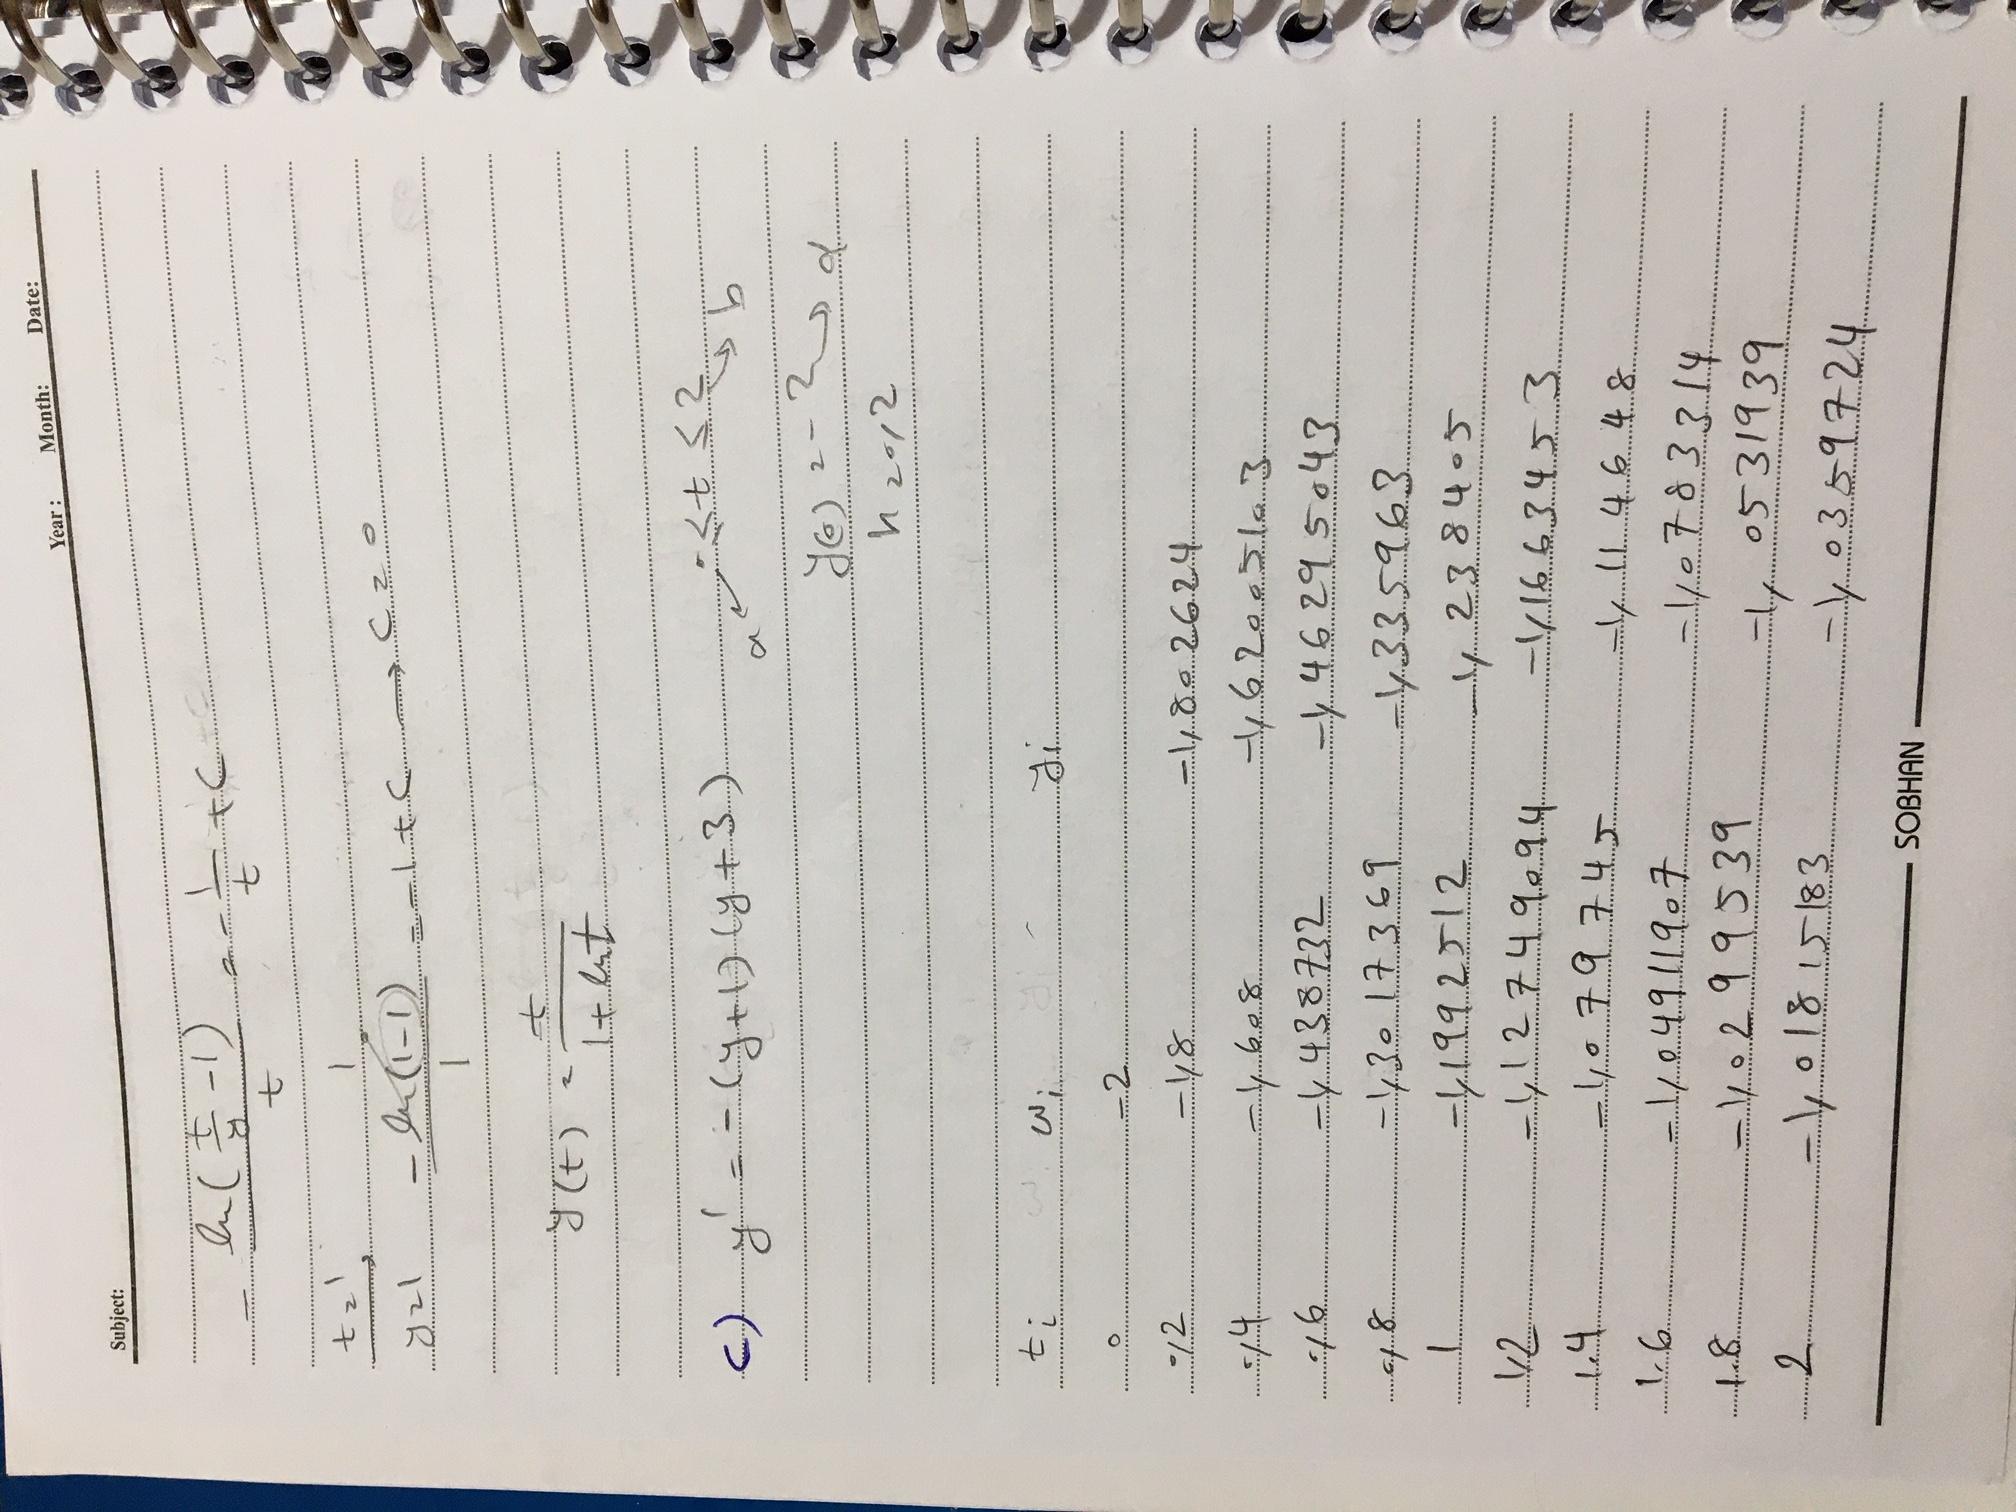 Subject: Year: Month: Date:
- ln(t/y -1) / t = -1/t + C
t=1, y=1 -ln(1-1) / 1 = -1 + C → C = 0
1
y(t) = t / 1+lnt
C) y' = -(y+1)(y+3) 0 ≤ t ≤ 2
a b
y(0) = -2 → α
h = 0,2
ti wi yi
0 -2
0,2 -1,8 -1,802624
0,4 -1,608 -1,62005103
0,6 -1,438732 -1,46295043
0,8 -1,3017369 -1,335963
1 -1,1992512 -1,238405
1,2 -1,12749094 -1,1663453
1.4 -1,0797445 -1,114648
1.6 -1,0491907 -1,0783314
1.8 -1,0299539 -1,0531939
2 -1,01815183 -1,0359724
SOBHAN